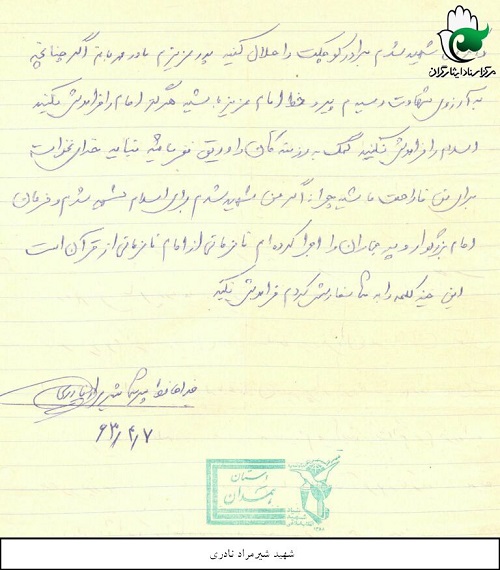 مرکز اسناد ایثارگران
شهید شدم برادر کوچکت را حلال کنید پدر عزیزم مادر مهربانم اگر چنانچه
به آرزوی شهادت رسیدم پیرو خط امام عزیز باشید هرگز امام را فراموش نکنید
اسلام را فراموش نکنید کمک به رزمندگان را دریغ نفرمائید نباید خدای نخواسته
برای من ناراحت باشید چرا اگر من شهید شدم برای اسلام شهید شدم و فرمان
امام بزرگوار و پیر جماران را اجرا کرده ام نافرمانی از امام نافرمانی از قرآن است
این چند کلمه را به شما سفارش کردم فراموش نکنید
خداحافظ پسر شما شیرمراد نادری
۶۳/۴/۷
استان
همدان
شهید شیرمراد نادری